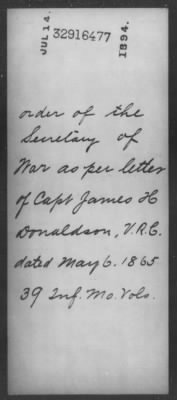 JUL 14. 32916477 1894.
order of the
Secretary of
War as per letter
of Capt James H
Donaldson, V.R.C.
dated May 6. 1865
39 Inf. Mo. Vols.